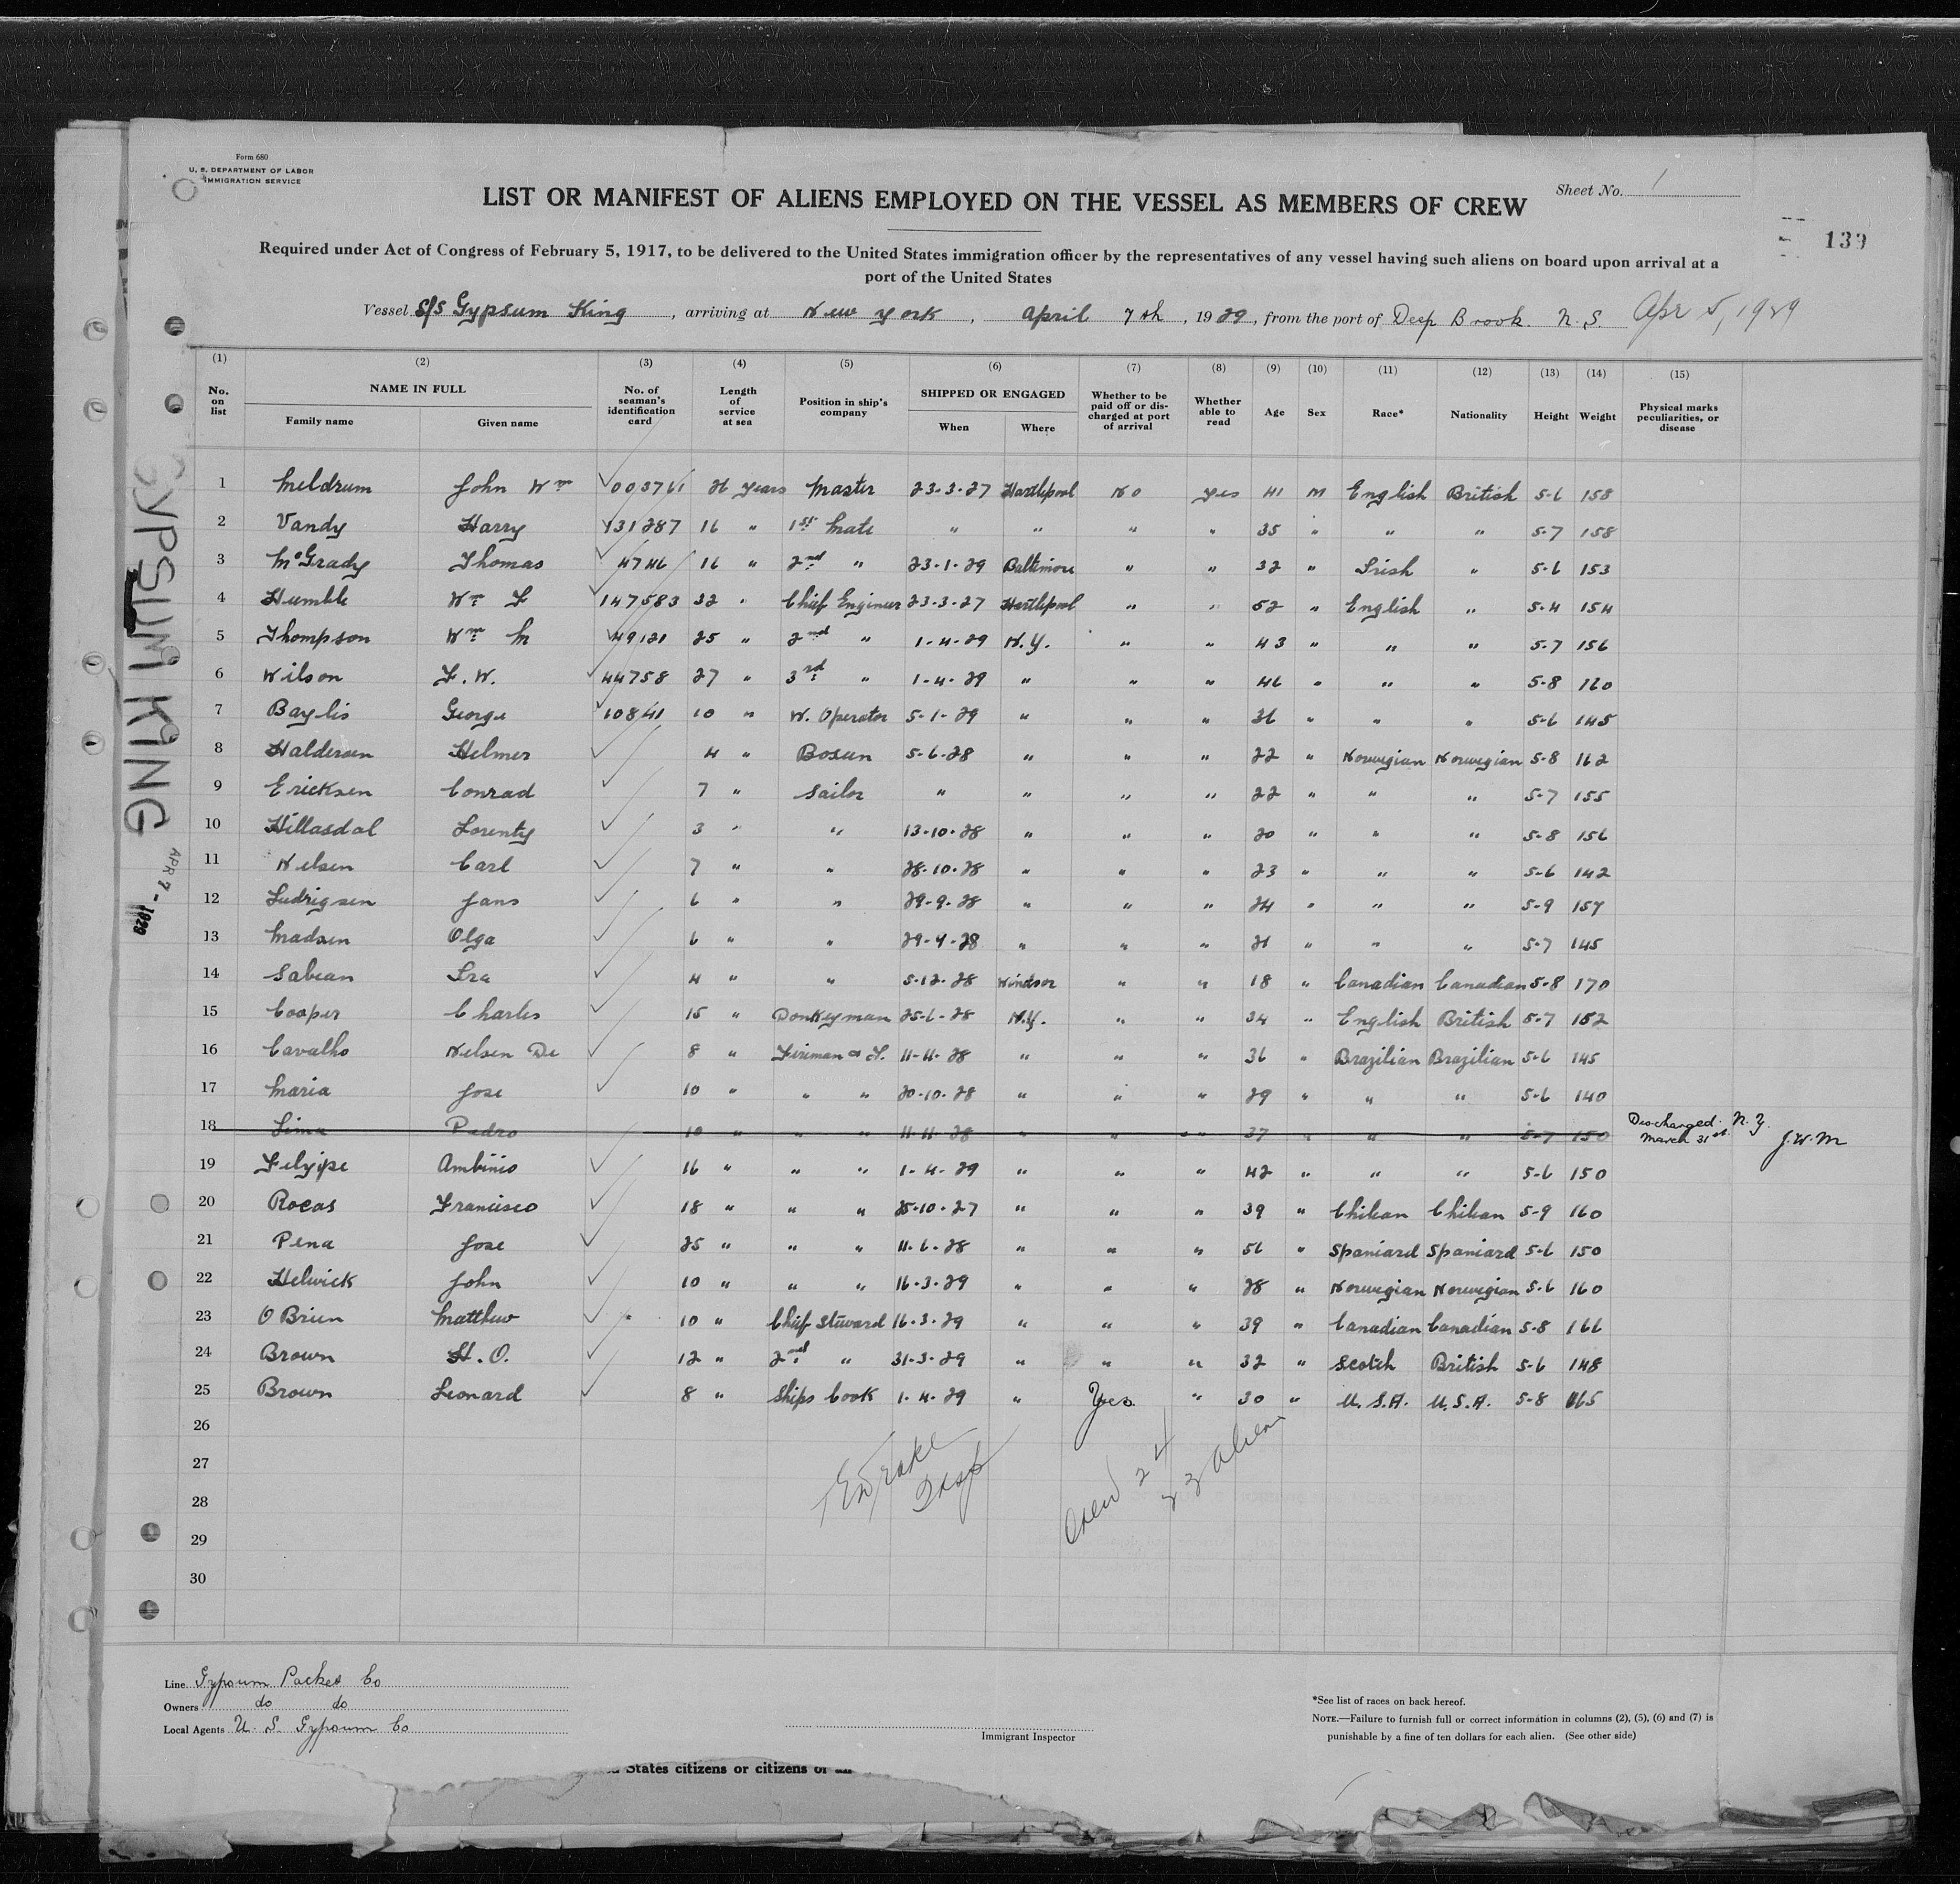 Form 680
U. S. DEPARTMENT OF LABOR
IMMIGRATION SERVICE
Sheet No. 1
LIST OR MANIFEST OF ALIENS EMPLOYED ON THE VESSEL AS MEMBERS OF CREW
139
Required under Act of Congress of February 5, 1917, to be delivered to the United States immigration officer by the representatives of any vessel having such aliens on board upon arrival at a
port of the United States
Vessel S/S Gypsum King, arriving at New York, April 7th, 1929, from the port of Deep Brook. N.S. Apr 5, 1929
(1) (2) (3) (4) (5) (6) (7) (8) (9) (10) (11) (12) (13) (14) (15)
No. on list NAME IN FULL Family name Given name No. of seaman's identification card Length of service at sea Position in ship's company SHIPPED OR ENGAGED When Where Whether to be paid off or discharged at port of arrival Whether able to read Age Sex Race* Nationality Height Weight Physical marks peculiarities, or disease
1 Meldrum John Wm 003761 26 years Master 23-3-27 Hartlepool No yes 41 M English British 5-6 158
2 Vandy Harry 131287 16 " 1st Mate " " " " 35 " " " 5-7 158
3 McGrady Thomas 4746 16 " 2nd " 23-1-29 Baltimore " " 32 " Irish " 5-6 153
4 Humble Wm F 147583 32 " Chief Engineer 23-3-27 Hartlepool " " 52 " English " 5-4 154
5 Thompson Wm M 49121 25 " 2nd " 1-4-29 N.Y. " " 43 " " " 5-7 156
6 Wilson F. W. 44758 27 " 3rd " 1-4-29 " " " 46 " " " 5-8 160
7 Baylis George 10841 10 " W. Operator 5-1-29 " " " 36 " " " 5-6 145
8 Haldersen Helmer 4 " Bosun 5-6-28 " " " 22 " Norwegian Norwegian 5-8 162
9 Ericksen Conrad 7 " Sailor " " " " 22 " " " 5-7 155
10 Hillasdal Lorenty 3 " " 13-10-28 " " " 20 " " " 5-8 156
11 Nelsen Carl 7 " " 28-10-28 " " " 23 " " " 5-6 142
12 Ludrigsen Jans 6 " " 29-9-28 " " " 24 " " " 5-9 157
13 Madsen Olga 6 " " 29-9-28 " " " 21 " " " 5-7 145
14 Sabean Ira 4 " " 5-12-28 Windsor " " 18 " Canadian Canadian 5-8 170
15 Cooper Charles 15 " Donkeyman 25-6-28 N.Y. " " 34 " English British 5-7 152
16 Cavalho Nelsen De 8 " Fireman & T. 11-11-28 " " " 36 " Brazilian Brazilian 5-6 145
17 Maria Jose 10 " " " 20-10-28 " " " 29 " " " 5-6 140
18 Lima Pedro 10 " " " 11-11-28 " " " 37 " " " 5-7 150 Discharged N.Y. March 31st. J.W.M
19 Felyipe Ambinio 16 " " " 1-4-29 " " " 42 " " " 5-6 150
20 Rocas Francisco 18 " " " 25-10-27 " " " 39 " Chilean Chilean 5-9 160
21 Pena Jose 25 " " " 11-6-28 " " " 56 " Spaniard Spaniard 5-6 150
22 Helwick John 10 " " " 16-3-29 " " " 28 " Norwegian Norwegian 5-6 160
23 O Brien Matthew 10 " Chief Steward 16-3-29 " " " 39 " Canadian Canadian 5-8 166
24 Brown H. O. 12 " 2nd " 31-3-29 " " " 32 " Scotch British 5-6 148
25 Brown Leonard 8 " Ships Cook 1-4-29 " Yes " 30 " U.S.A. U.S.A. 5-8 165
26
27
28
29
30
Crew 24
23 Aliens
GYPSUM KING
APR 7 - 1929
Line Gypsum Packet Co
Owners do do
Local Agents U. S. Gypsum Co
Immigrant Inspector
*See list of races on back hereof.
NOTE.—Failure to furnish full or correct information in columns (2), (5), (6) and (7) is
punishable by a fine of ten dollars for each alien. (See other side)
States citizens or citizens of